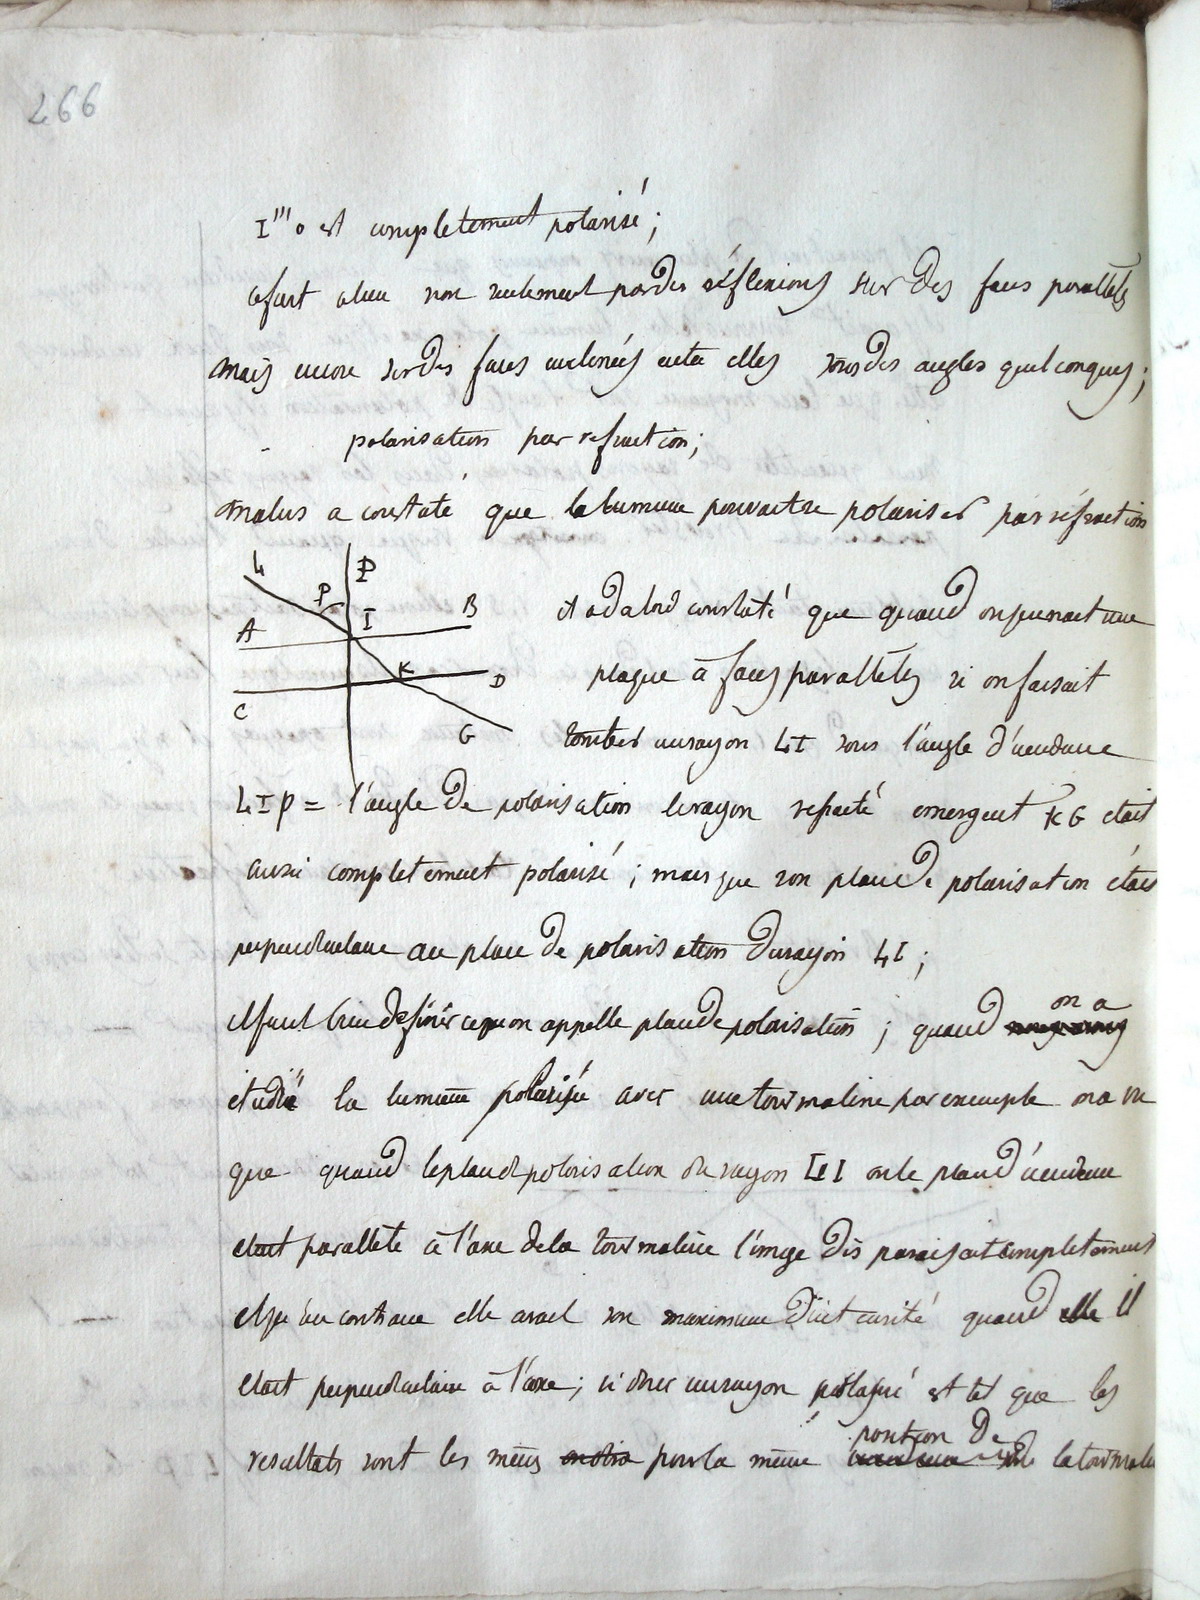 266
I''' o est completement polarisé ;
cefait a lieu non seulement par des réflexions sur des faces paralleles
mais encore sur des faces inclinées entre elles sous des angles quelconques ;
polarisation par refraction ;
malus a constaté que la lumiere pouvait se polariser par réfraction
L P P
A I B
K D
C
G
et a dabord constaté que quand on prenait une
plaque à faces paralleles si on faisait
tomber un rayon LI sous l'angle d'incidence
LIP = l'angle de polarisation le rayon refracté emergent KG etait
aussi completement polarisé ; mais que son plan de polarisation était
perpendiculaire au plan de polarisation du rayon LI ;
il faut bien definir ce qu'on appelle plan de polarisation ; quand on a
étudié la lumiere polarisée avec une tourmaline par exemple on a vu
que quand le plan de polarisation du rayon LI ou le plan d'incidence
etait parallele à l'axe de la tourmaline l'image disparaissait completement
et qu'au contraire elle avait son maximum d'intensité quand elle il
etait perpendiculaire à l'axe ; si donc un rayon polarisé est tel que les
resultats sont les mêmes pour la même position de la tourmaline